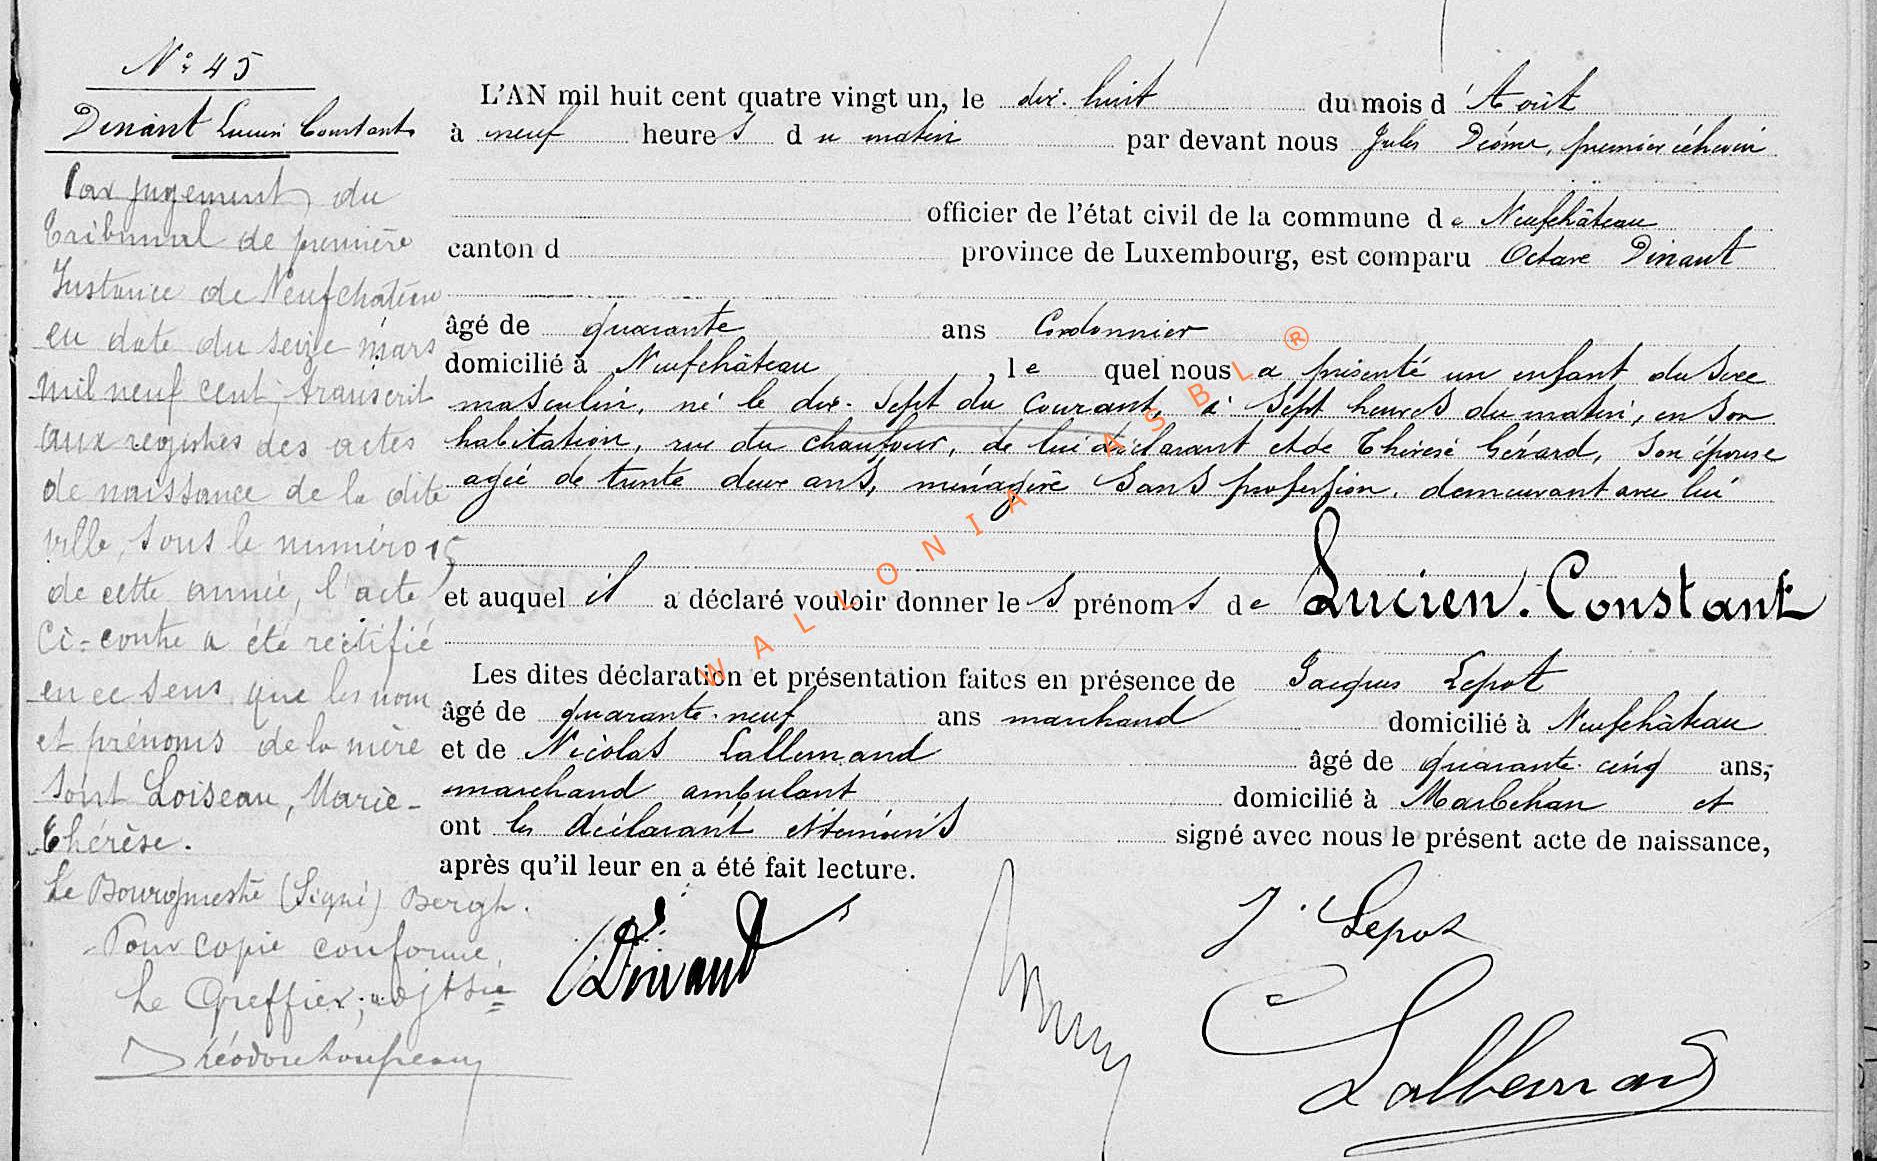 N° 45
Dinant Lucien Constant
Par jugement du
Tribunal de première
Instance de Neufchâteau
en date du seize mars
mil neuf cent, transcrit
aux registres des actes
de naissance de la dite
ville, sous le numéro 15
de cette année, l'acte
ci-contre a été rectifié
en ce sens que les nom
et prénoms de la mère
sont Loiseau, Marie-
Thérèse.
Le Bourgmestre (Signé) Bergh.
Pour copie conforme,
Le Greffier, adjt
L'AN mil huit cent quatre vingt un, le dix-huit du mois d'Août
à neuf heures du matin par devant nous Jules premier échevin
officier de l'état civil de la commune de Neufchâteau
canton d province de Luxembourg, est comparu Octave Dinant
âgé de quarante ans Cordonnier
domicilié à Neufchâteau, lequel nous a présenté un enfant du sexe
masculin, né le dix-sept du courant, à sept heures du matin, en son
habitation, rue du chaufour, de lui déclarant et de Thérèse Gérard, son épouse
agée de trente deux ans, ménagère sans profession, demeurant avec lui
et auquel il a déclaré vouloir donner les prénoms de Lucien-Constant
Les dites déclaration et présentation faites en présence de Jacques Lepot
âgé de quarante-neuf ans marchand domicilié à Neufchâteau
et de Nicolas Lallemand âgé de quarante-cinq ans,
marchand ambulant domicilié à Marbehan et
ont les déclarant et témoins signé avec nous le présent acte de naissance,
après qu'il leur en a été fait lecture.
Dinant
J. Lepot
Lallemand
WALLONIA ASBL ®